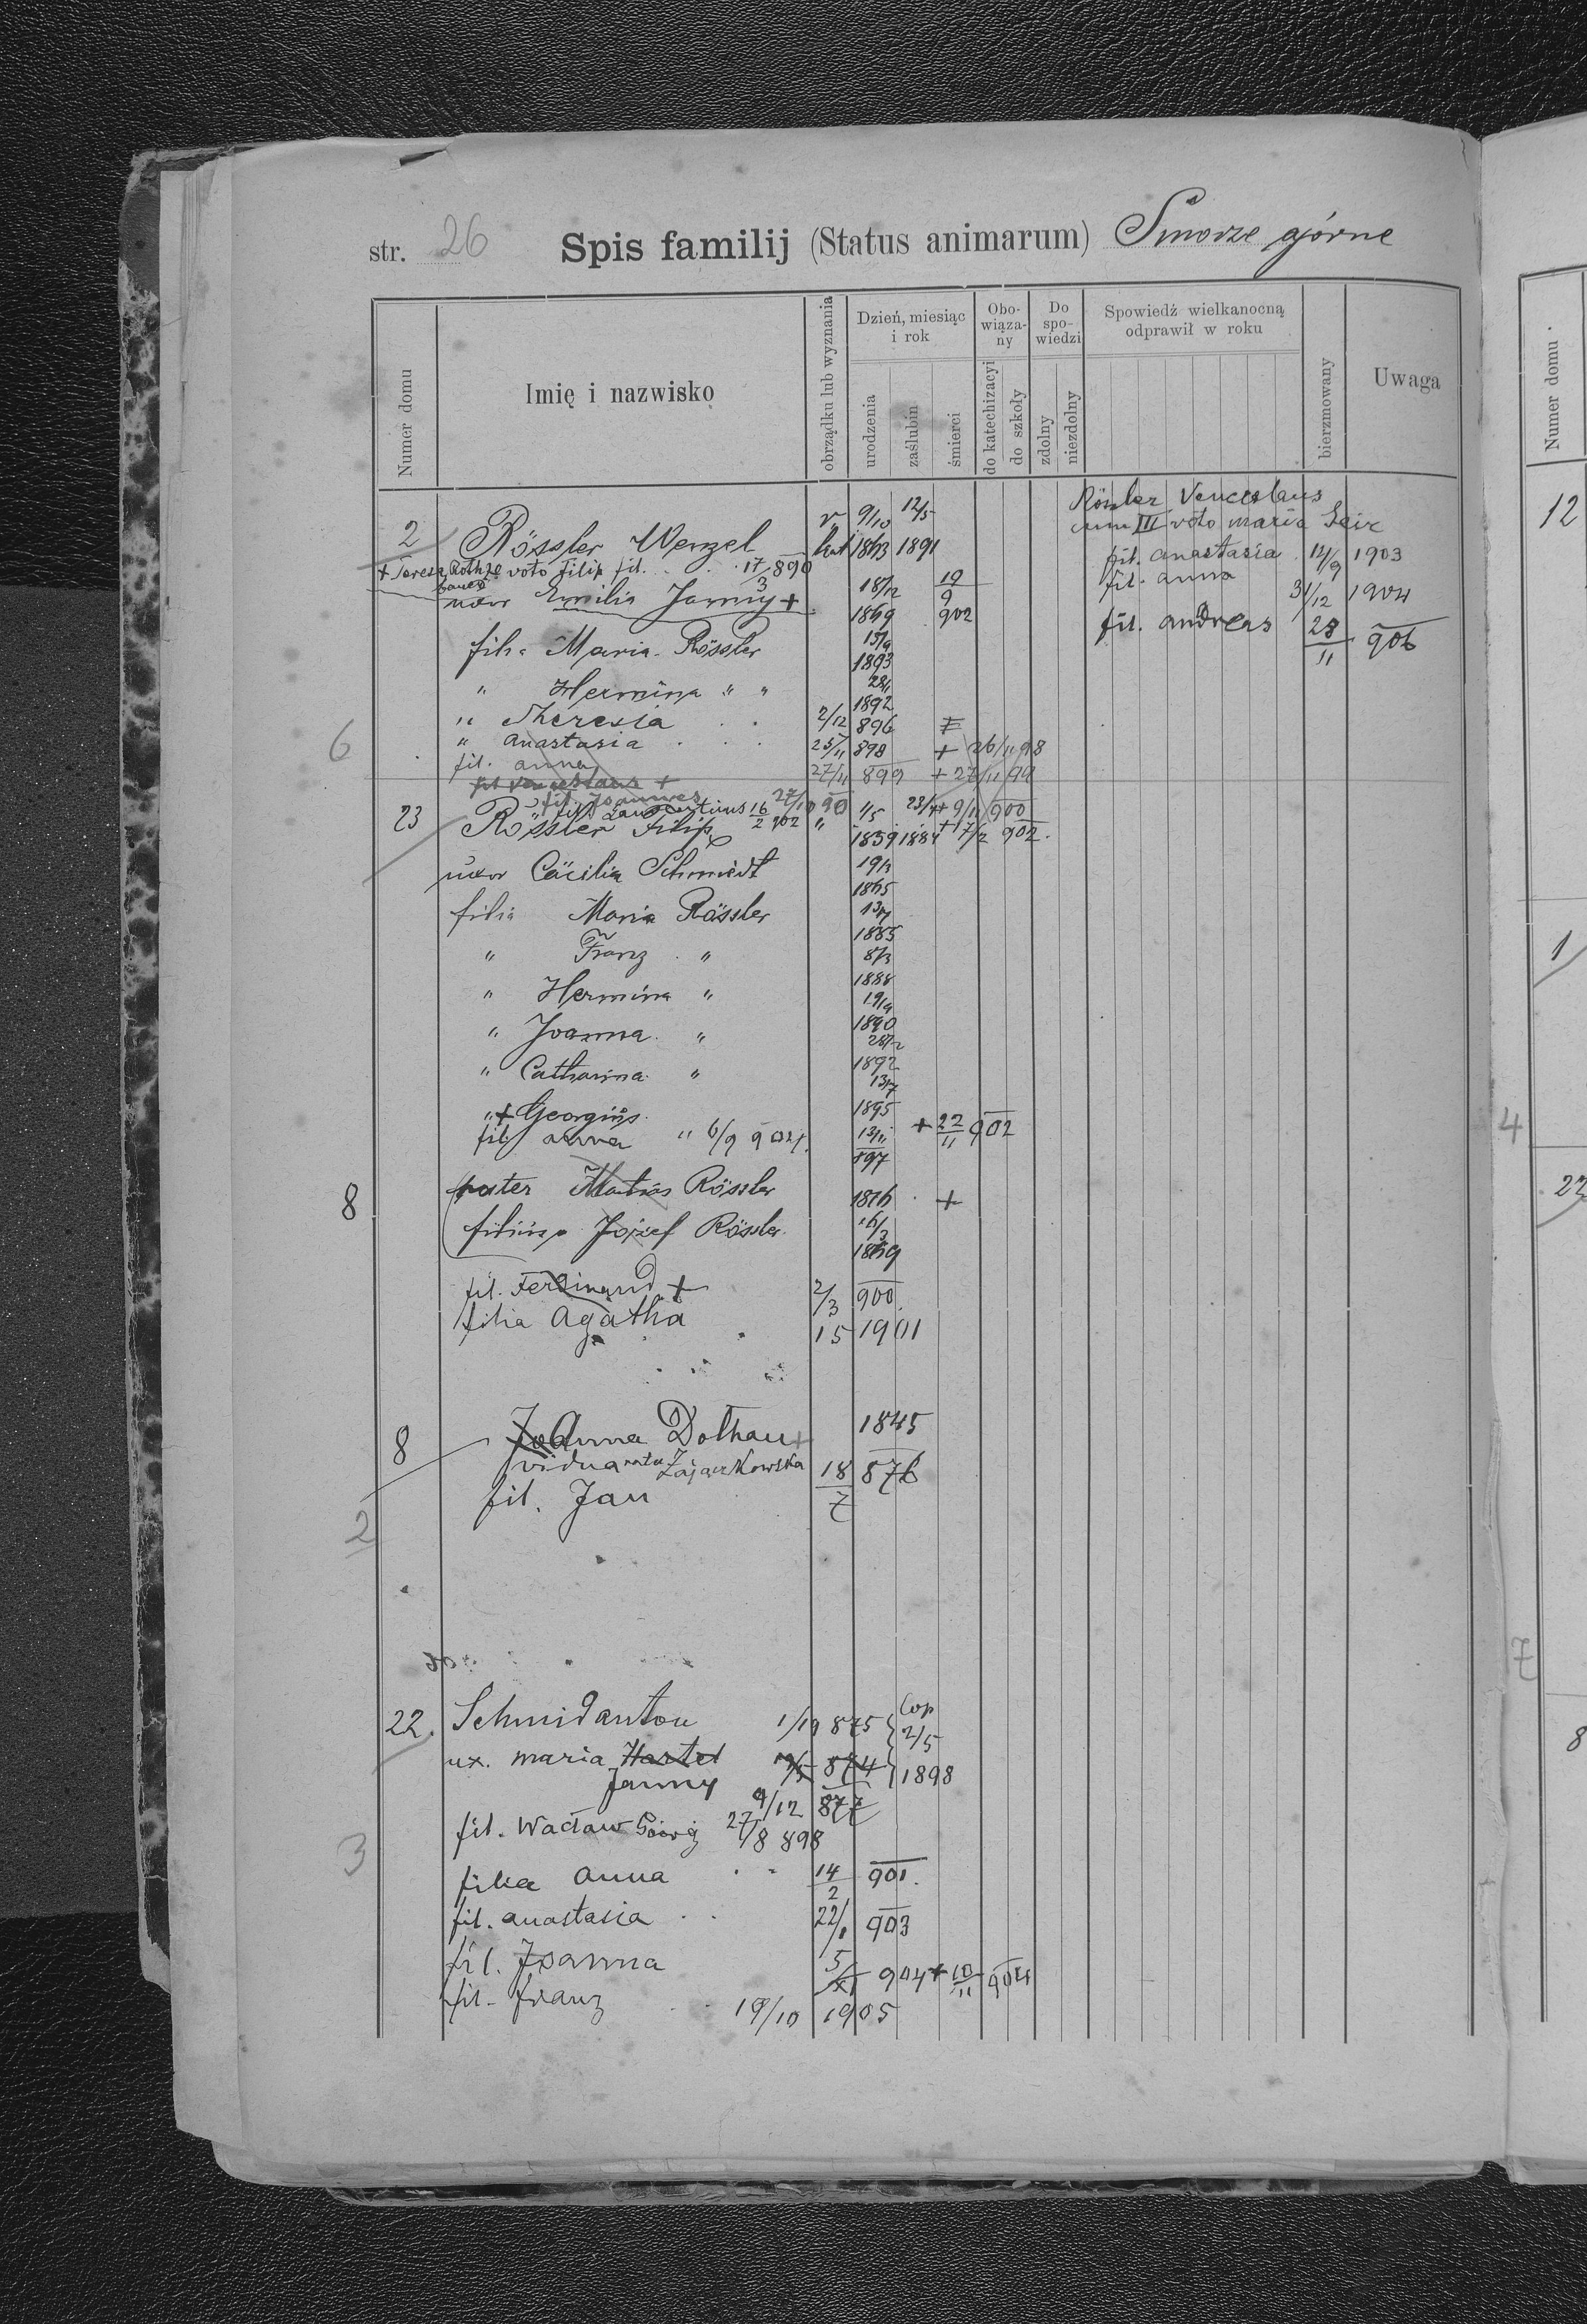 str. 26 Spis familij (Status animarum) Smorze górne
Numer domu
Imię i nazwisko
obrządku lub wyznania
Dzień, miesiąc i rok
urodzenia
zaślubin
śmierci
Obo-wiąza-ny
do katechizacyi
do szkoły
Do spo-wiedzi
zdolny
niezdolny
Spowiedź wielkanocną odprawił w roku
bierzmowany
Uwaga
2 Rössler Wenzel 9/10 1863 12/5 1891
voto filip fil. 17/3 890
uxor Emilia Janny + 18/12 1869 19/9 902
filia Maria Rössler 1893
" Hermina " " 1892
" Theresia 2/12 896
" Anastasia 25/11 898 + 26/11 98
fil. anna 27/11 899 + 27/11 99
fil. Joannes 27/10 90 + 9/11 900
16/2 902 + 17/2 902.
23 Rössler Filip " 1/5 1859 1884
uxor Cäcilia Schmiedt 19/3 1865
filia Maria Rössler 1885
" Franz " 8/3 1888
" Hermina " 1890
" Joanna " 1892
" Catharina " 1895
" + Georgius 13/11 897 + 22/11 902
fil. anna " 6/9 902
pater Matias Rössler 1816 +
filius Józef Rössler 1869
fil. Ferdinand + 2/3 900
filia Agatha 15 1901
Rössler Venceslaus
cum III voto maria
fil. anastasia 14/9 1903
fil. anna 31/12 1904
fil. andreas 28/11 906
6
8
8 Anna Dothau + 1845
vidua nata Zajączkowska
fil. Jan 18/7 876
2
22. Schmid anton 875 Cop 2/5 1898
ux. maria Hartel 874
Janny 9/12 877
fil. Wacław 27/8 898
filia anna 14/2 901.
fil. anastasia 903
fil. Joanna 5/XI 904 + 10/11 904
fil. franz 19/10 1905
3
Numer domu
12
1
4
22
7
8